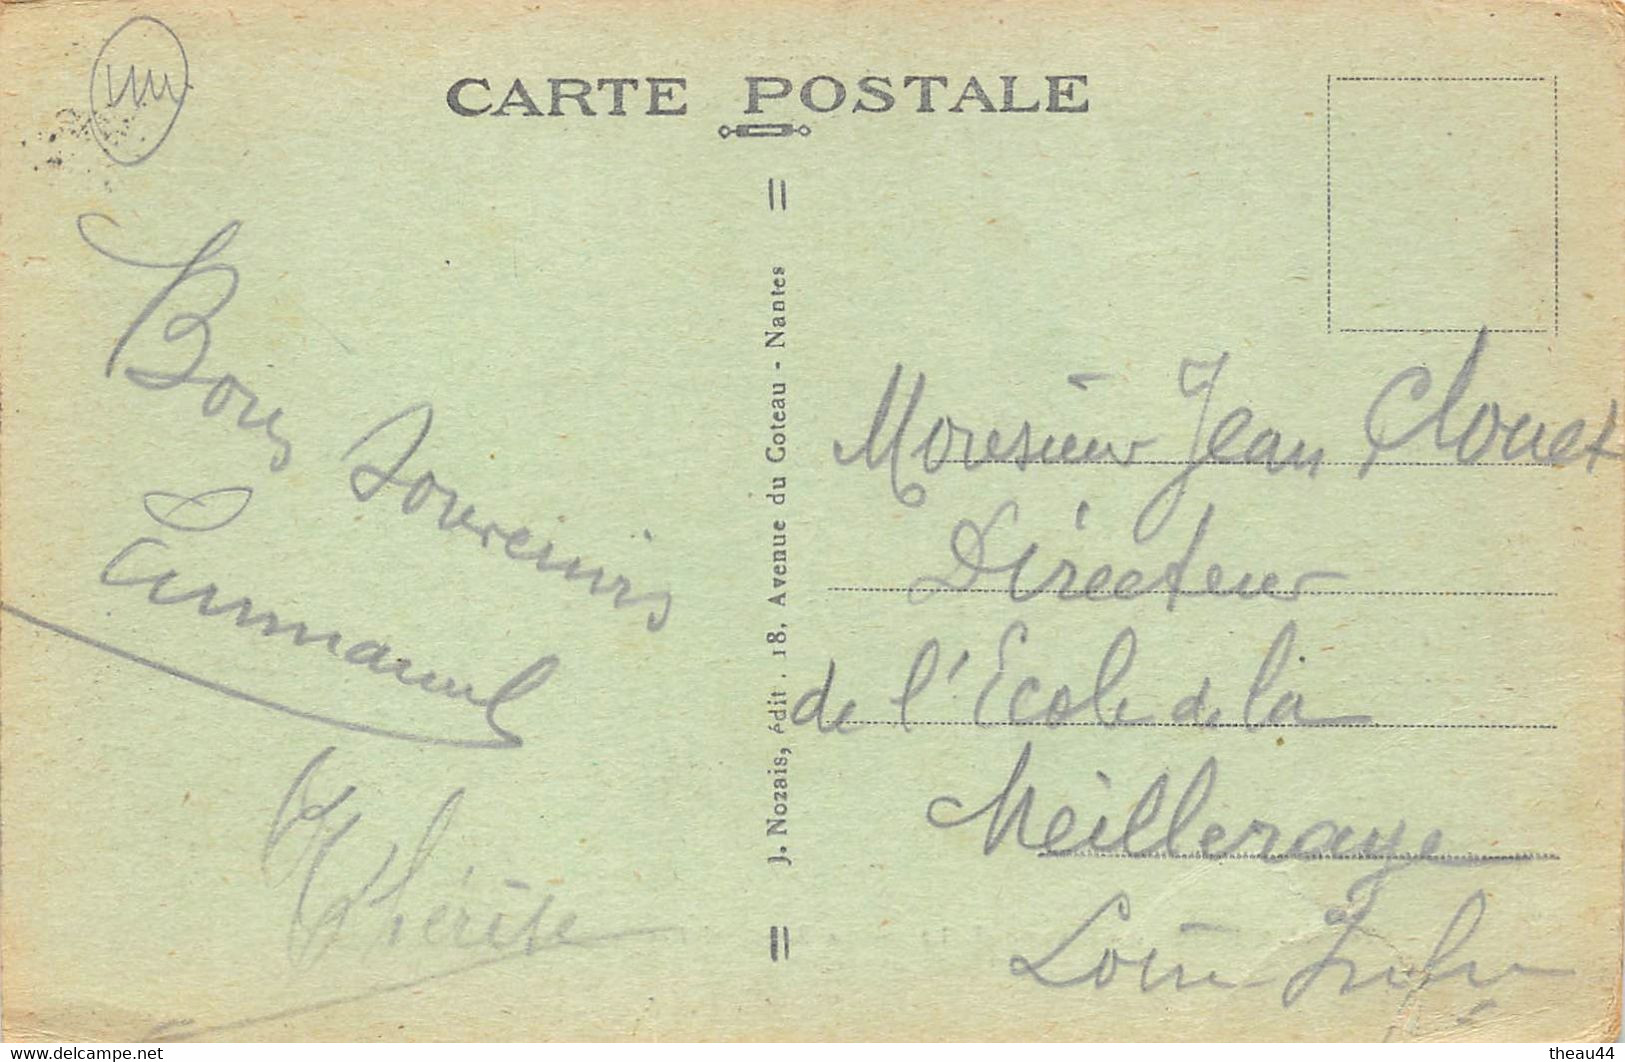 CARTE POSTALE
Bons Souvenirs
Emmanuel
Thérèse
J. Nozais, édit. 18, Avenue du Coteau - Nantes
Monsieur Jean Clouet
Directeur
de l'Ecole de la
Meilleraye
Loire Infre
theau44